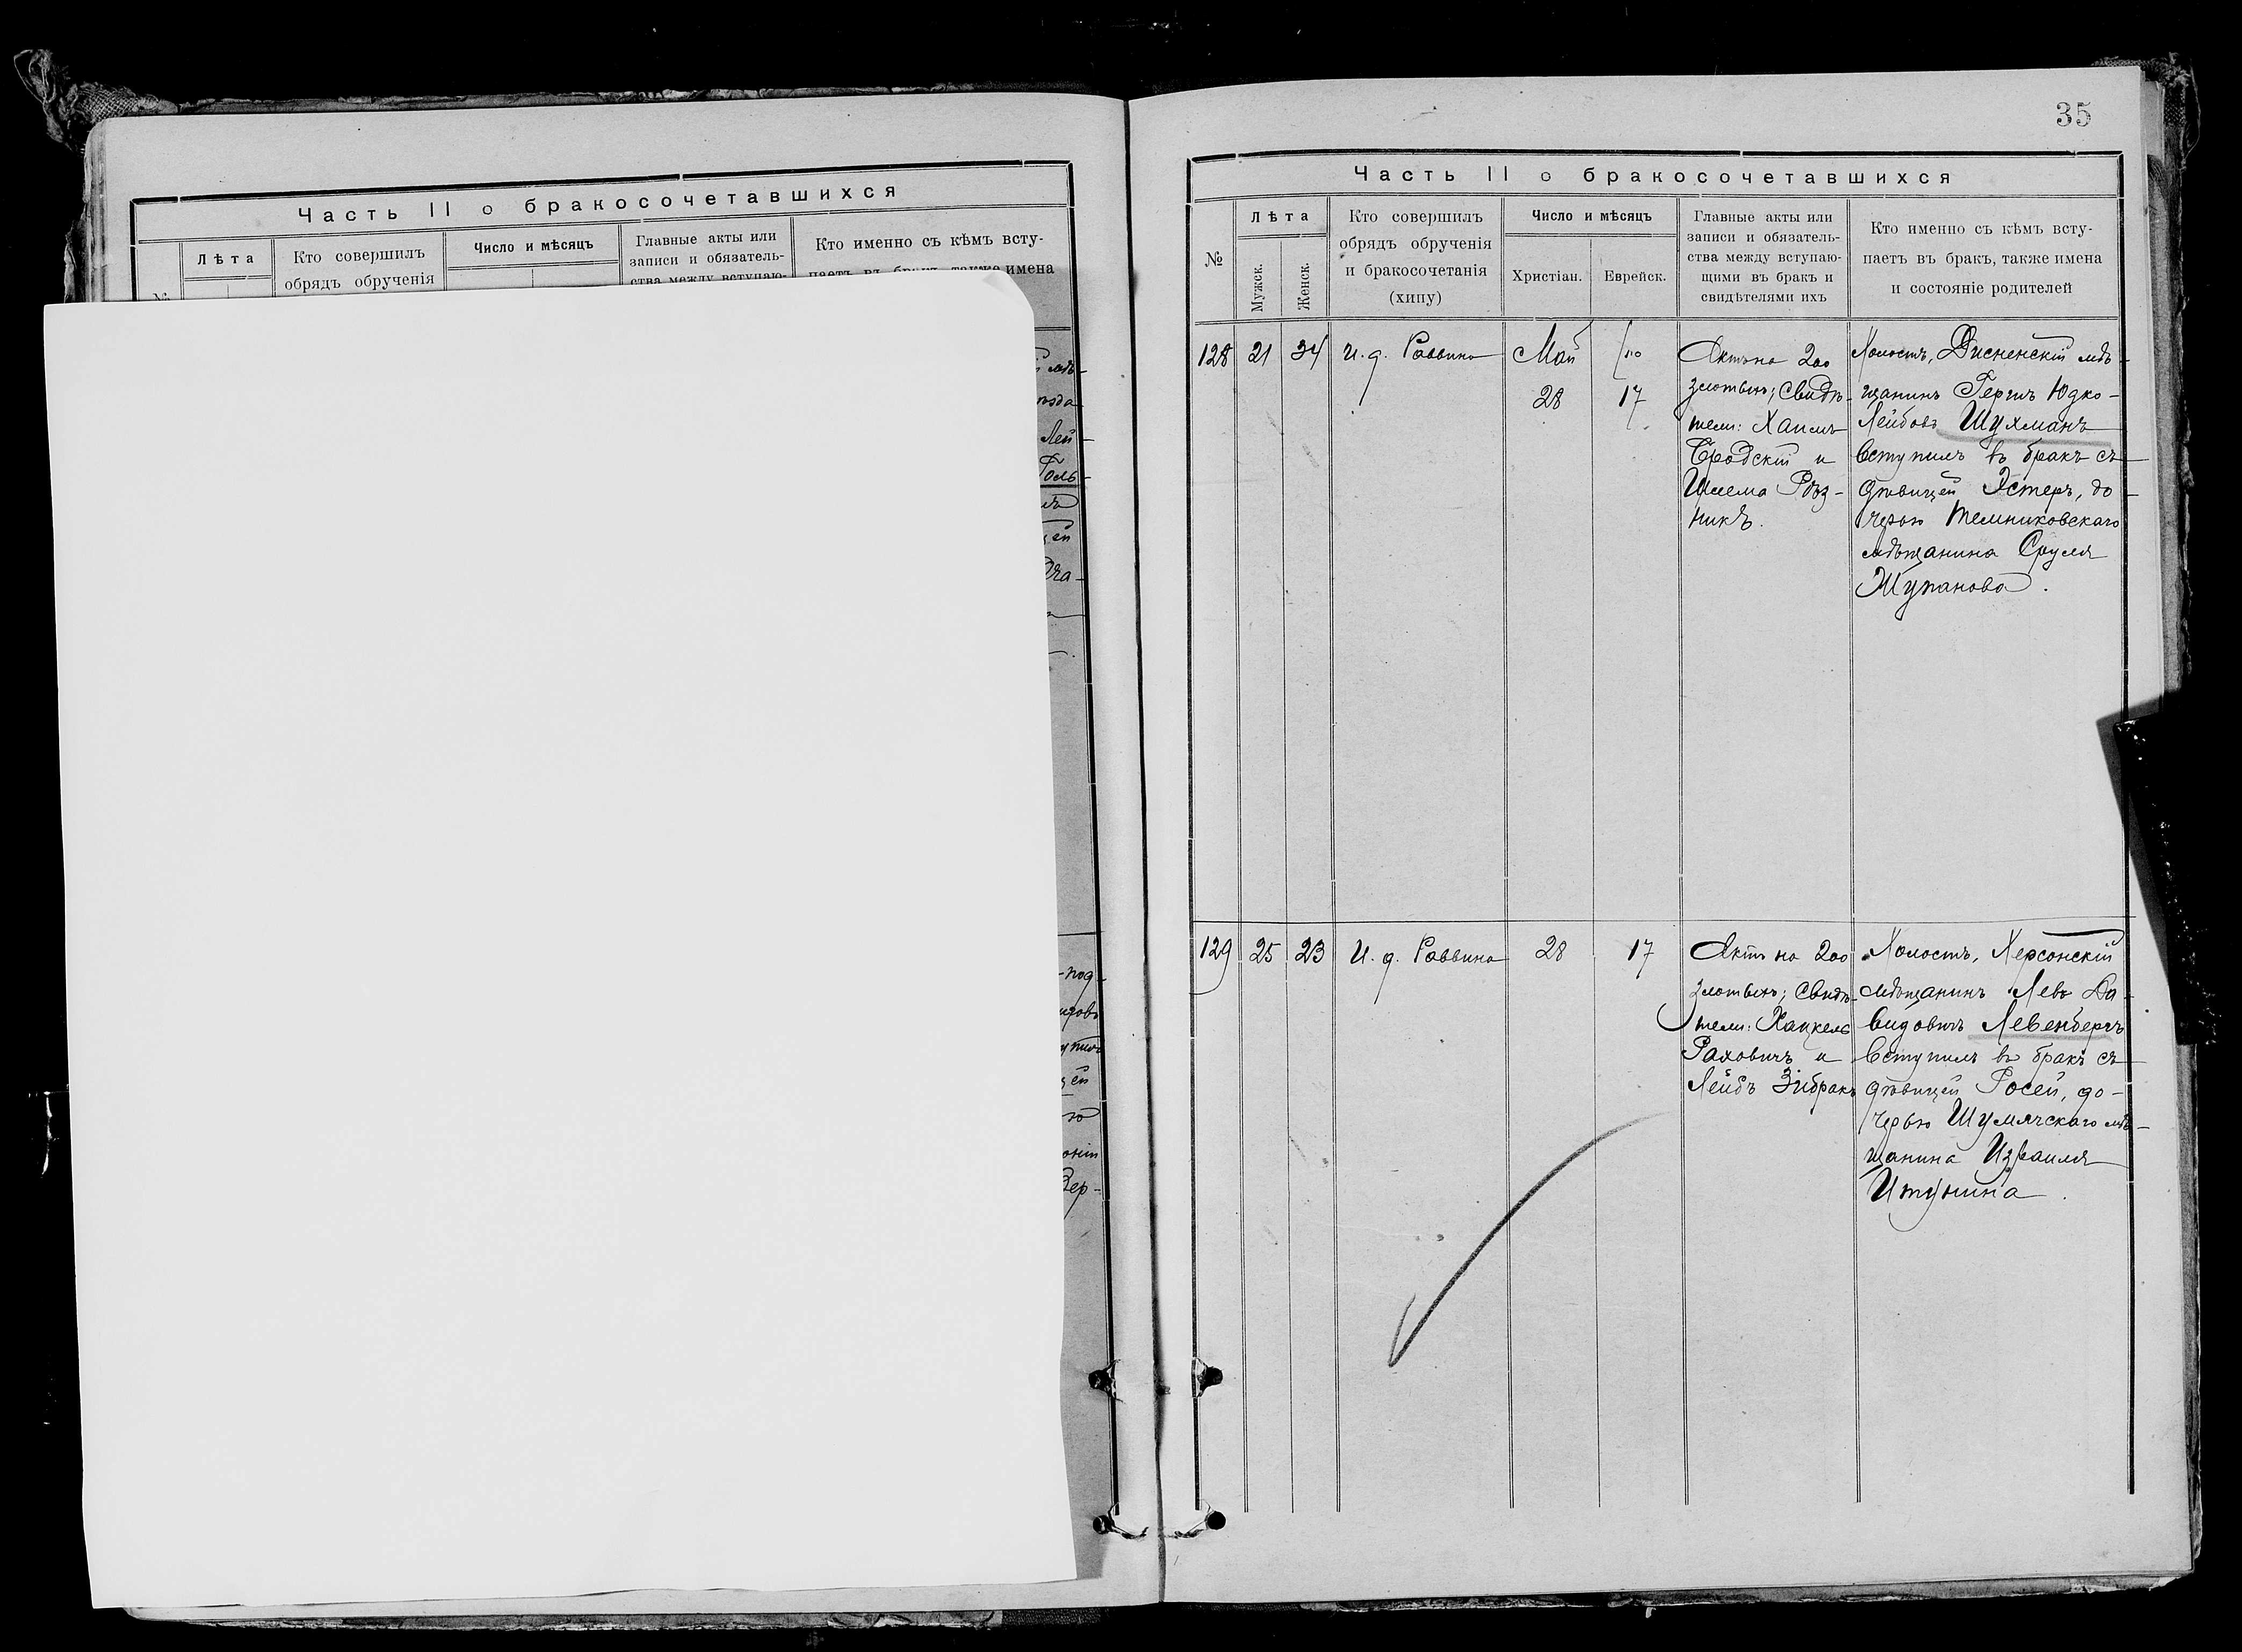 Часть II о бракосочетавшихся
№
Лѣта
Кто совершилъ
обрядъ обрученія
Число и мѣсяцъ
Главные акты или
записи и обязатель-
ства между вступаю-
Кто именно съ кѣмъ всту-
паетъ въ бракъ, также имена
35
Часть II о бракосочетавшихся
№
Лѣта
Мужск.
Женск.
Кто совершилъ
обрядъ обрученія
и бракосочетанія
(хипу)
Число и мѣсяцъ
Христіан.
Еврейск.
Главные акты или
записи и обязатель-
ства между вступаю-
щими въ бракъ и
свидѣтелями ихъ
Кто именно съ кѣмъ всту-
паетъ въ бракъ, также имена
и состояніе родителей
128
21
34
И. д. Раввина
Май
28
17
Актъ на 200
злотыхъ; Свидѣ-
тели: Хаимъ
Бродскій и
Шлема Рѣз-
никъ.
Холостъ, Дисненскій мѣ-
щанинъ Гершъ Юдко-
Лейбовъ Шухманъ
вступилъ въ бракъ съ
дѣвицей Эстеръ, до-
черью Темниковскаго
мѣщанина Сруля
Жупанова.
129
25
23
И. д. Раввина
28
17
Актъ на 200
злотыхъ; Свидѣ-
тели: Хацкель
Рахович и
Лейбъ Зибракъ
Холостъ, Херсонскій
мѣщанинъ Левъ Да-
видовичъ Левенбергъ
вступилъ въ бракъ съ
дѣвицей Росей, до-
черью Шумячскаго мѣ-
щанина Израиля
Итунина.